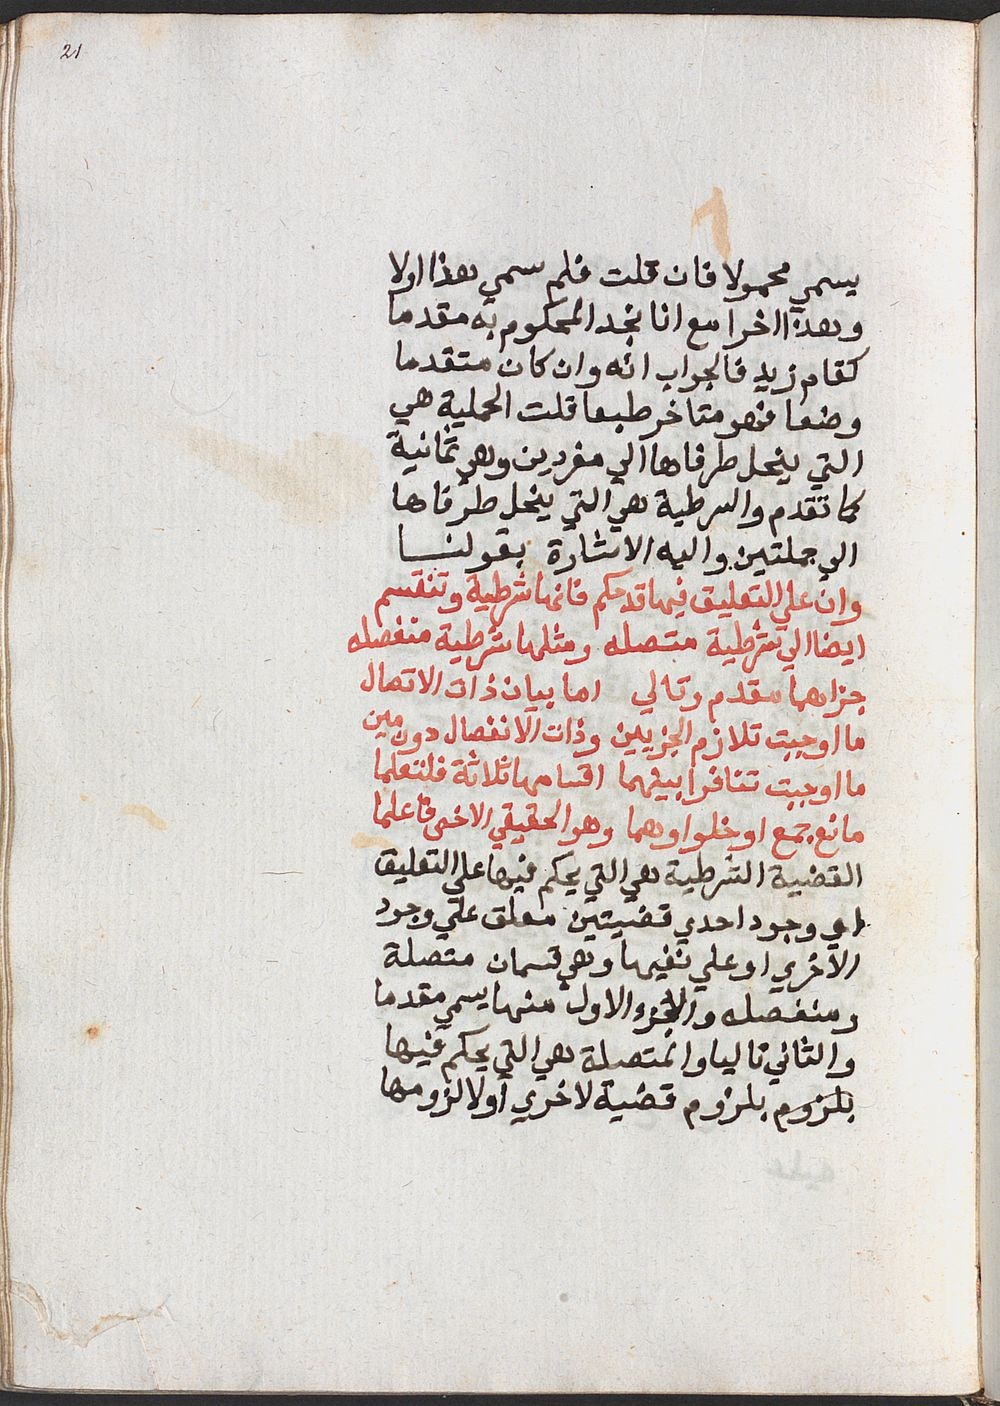 21
يسمي محمولا فان قلت فلم سمي هذا اولا
وهذا اخرا مع انا نجد المحكوم به مقدما
كقام زيد فالجواب انه وان كان متقدما
وضعا فهو متاخر طبعا قلت الحملية هي
التي ينحل طرفاها الي مفردين وهي ثمانية
كما تقدم والسرطية هي التي ينحل طرفاها
الي جملتين واليه الاشارة بقولنا
وان علي التعليق فيها قد حكم فانها شرطية وتنقسم
ايضا الي شرطية متصله ومثلها شرطية منفصله
جزاهما مقدم وتالي اما بيان ذات الاتصال
ما اوجبت تلازم الجزيين وذات الانفصال دون مين
ما اوجبت تنافرا بينهما اقسامها ثلاثة فلتعلما
مانع جمع او خلو اوهما وهو الحقيقي الاخص فاعلما
القضية الشرطية هي التي يحكم فيها علي التعليق
اي وجود احدي قضيتين معلق علي وجود
الاخري او علي نفيها وهي قسمان متصلة
ومنفصله والجزء الاول منها يسمي مقدما
والثاني تاليا والمتصلة هي التي يحكم فيها
بلزوم بلزوم قضية لاخري أولا لزومها